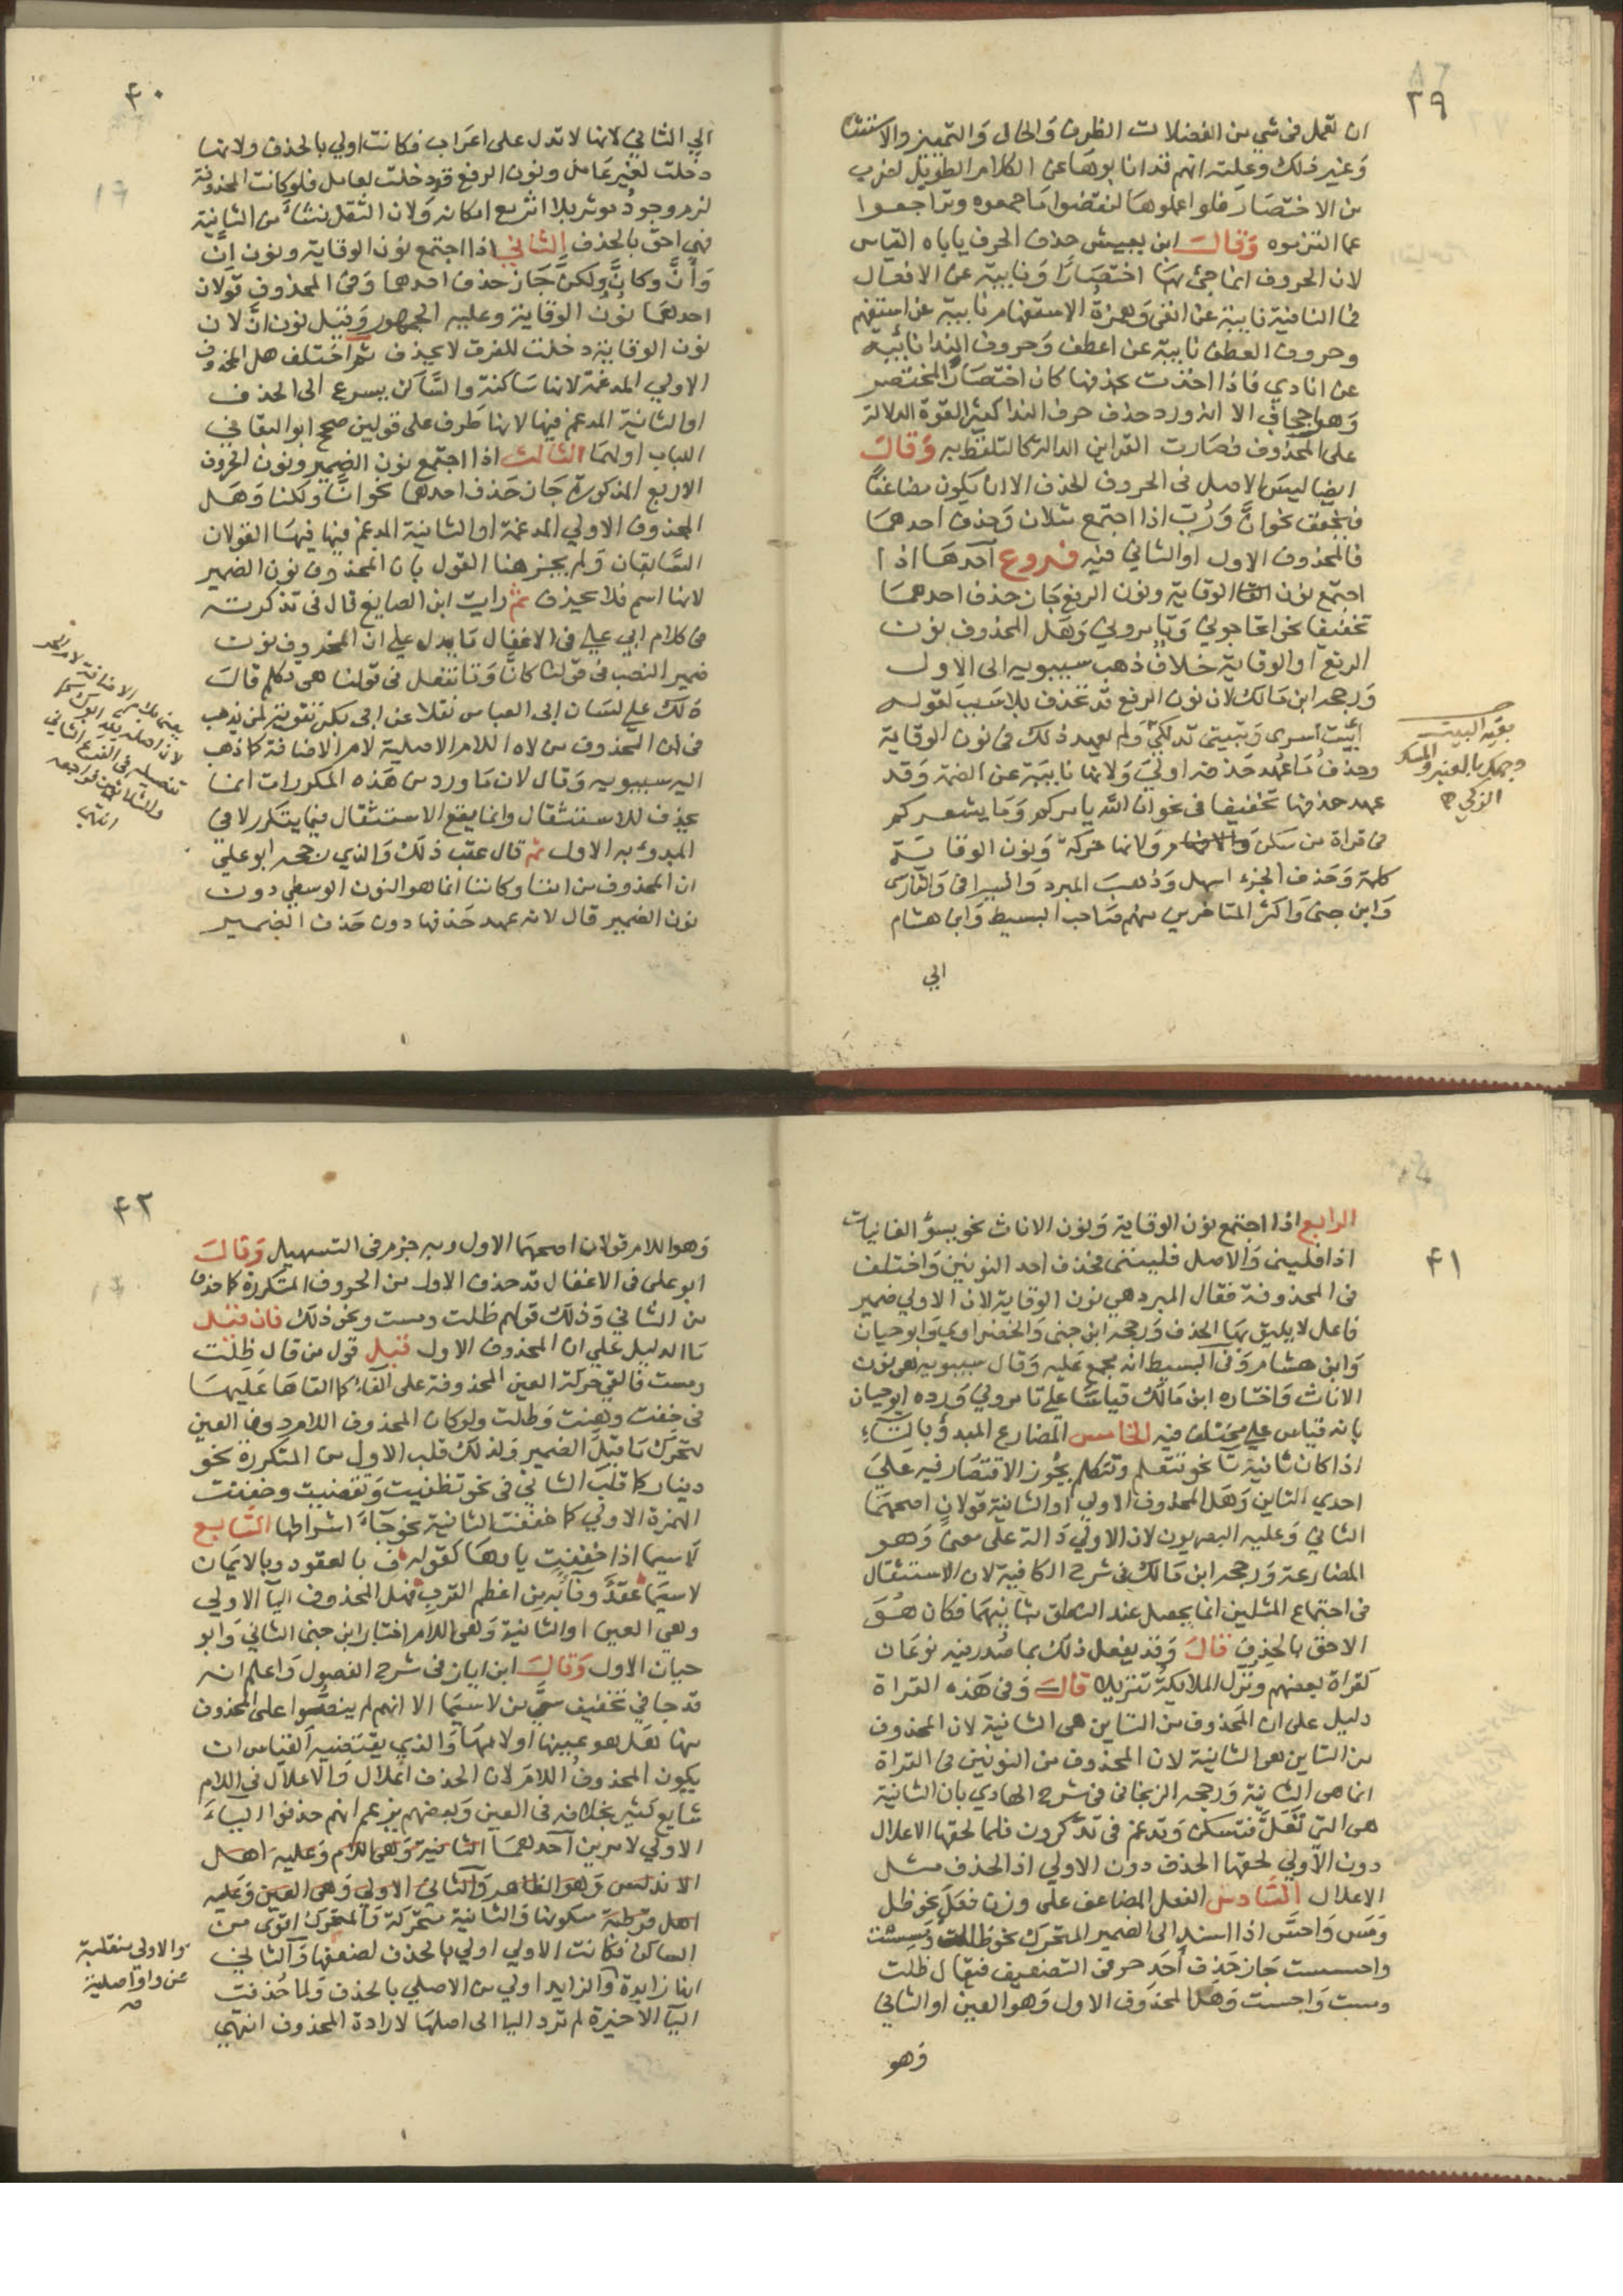 ٣٩
ان تعمل فى شي من الفضلات الظرف والحال والتمييز والاستثنا
وغير ذلك وعلته انهم قد انابوها عن الكلام الطويل لضرب
من الاختصار فلو اعملوها لنقضوا ما جمعوه وتراجعوا
عما التزموه وقال ابن يعيش حذف الحرف ياباه القياس
لان الحروف انما جئ بها اختصارا ونايبة عن الافعال
فما النافية نايبة عن انفى وهمزة الاستفهام نايبة عن استفهم
وحروف العطف نايبة عن اعطف وحروف الندا نائبة
عن انادي فاذا اخذت بحذفها كان اختصار المختصر
وهو اجحاف الا انه ورد حذف حرف الندا كثيرا لقوة الدلالة
على المحذوف فصارت القراين الدالة كالتلفظ به وقال
ايضا ليس الاصل فى الحروف الحذف الا ان يكون مضاعفا
فيخفف نحو انّ ورُبّ اذا اجتمع مثلان وحذف احدهما
فالمحذوف الاول او الثاني فيه فروع احدها اذا
اجتمع نون الوقاية ونون الرفع جاز حذف احدهما
تخفيفا نحو اتحاجوني وتامروني وهل المحذوف نون
الرفع او الوقاية خلاف ذهب سيبويه الى الاول
ورجحه ابن مالك لان نون الرفع قد تحذف بلا سبب لقوله
أبيت أسرى وتبيتى تدلكي ولم يعهد ذلك فى نون الوقاية
وحذف ما عُهد حذفه اولى ولانها نايبة عن الضمة وقد
عهد حذفها تخفيفا فى نحو ان الله يامركم وما يشعركم
فى قراة من سكن ولانها حركة ونون الوقاية
كلمة وحذف الجزء اسهل وذهب المبرد والسيرافى والفارسى
وابن جنى واكثر المتاخرين منهم صاحب البسيط وابن هشام
الي
بقية البيت
وجهك بالعنبر والمسك
الزكي
٤٠
الي الثاني لانها لا تدل على اعراب فكانت اولي بالحذف ولانها
دخلت لغير عامل ونون الرفع قد دخلت بعامل فلو كانت المحذوفة
لزم وجود موثر بلا اثر مع امكانه ولان الثقل نشأ من الثانية
فهي احق بالحذف الثاني اذا اجتمع نون الوقاية ونون انّ
وأنّ وكأنّ ولكنّ جاز حذف احدهما وفى المحذوف قولان
احدهما نون الوقاية وعليه الجمهور وقيل نون انّ لان
نون الوقاية دخلت للفرق لا تحذف ثم اختلف هل المحذوف
الاولي المدغمة لانها ساكنة والساكن يسرع الى الحذف
او الثانية المدغم فيها لانها طرف على قولين صحح ابو البقا في
اللباب اولهما الثالث اذا اجتمع نون الضمير ونون الحروف
الاربع المذكورة جاز حذف احدهما نحو انّا ولكنا وهل
المحذوف الاولي المدغمة او الثانية المدغم فيها فيها القولان
السابقان ولم يجز هنا القول بان المحذوف نون الضمير
لانها اسم فلا تحذف ثم رايت ابن الصايغ قال فى تذكرته
فى كلام ابي علي فى الاغفال ما يدل علي ان المحذوف نون
ضمير النصب فى قولنا كأنّا وتا تفعل فى قولنا هي تكلم قال
ذلك علي لسان ابى العباس نقلا عن ابى بكر تقوية لمن يذهب
فى ان المحذوف من لاه اللام الاصلية لا لام الاضافة كما ذهب
اليه سيبويه وقال لان ما ورد من هذه المكررات انما
يحذف للاستثقال وانما يقع الاستثقال فيما يتكرر لا في
المبدوء به الاول ثم قال عقب ذلك والذي رجحه ابو علي
ان المحذوف من اننا وكاننا انما هو النون الوسطى دون
نون الضمير قال لانه عهد حذفها دون حذف الضمير
يعنى بلام الاضافة لام الجر
لان اصله لله ابوك
تفصيله فى الفرع الثانى
فراجعه
انتهى
٤١
الرابع اذا اجتمع نون الوقاية ونون الاناث نحو يسؤ الفاليات
اذا فليني والاصل فلينني فحذف احد النونين واختلف
فى المحذوفة فقال المبرد هي نون الوقاية لان الاولي ضمير
فاعل لا يليق بها الحذف ورجحه ابن جنى والخضراوي وابو حيان
وابن هشام وفى البسيط انه مجمع عليه وقال سيبويه هى نون
الاناث واختاره ابن مالك قياسا علي تامروني ورده ابو حيان
بانه قياس على مختلف فيه الخامس المضارع المبدؤ بالتاء
اذا كان ثانيه تآ نحو تتعلم وتتكلم يجوز الاقتصار فيه على
احدي التاين وهل المحذوف الاولي او الثانية قولان اصحهما
الثاني وعليه البصريون لان الاولي دالة على معنى وهو
المضارعة ورجحه ابن مالك فى شرح الكافية لان الاستثقال
فى اجتماع المثلين انما يحصل عند النطق بثانيهما فكان هو
الاحق بالحذف قال وقد يفعل ذلك بما صُدر فيه نونان
كقراة بعضهم ونُزّل الملايكة تنزيلا قال وفى هذه القراة
دليل على ان المحذوف من التاين هى الثانية لان المحذوف
من التاين هى الثانية لان المحذوف من النونين فى القراة
انما هى الثانية ورجحه الزنجانى فى شرح الهادي بان الثانية
هى التى تُعل فتسكن وتدغم فى تذّكرون فلما لحقها الاعلال
دون الاولي لحقها الحذف دون الاولي اذ الحذف مثل
الاعلال السادس الفعل المضاعف على وزن فعَل نحو ظل
ومسّ واحسّ اذا اسند الى الضمير المتحرك نحو ظللت ومسست
واحسست جاز حذف احد حرفى التضعيف فيقال ظلت
ومست واحست وهل المحذوف الاول وهو العين او الثاني
وهو
٤٢
وهو اللام قولان اصحهما الاول وبه جزم فى التسهيل وقال
ابو على فى الاغفال قد حذف الاول من الحروف المتكررة كما حذف
من الثاني وذلك قولهم ظلت ومست ونحو ذلك فان قيل
ما الدليل على ان المحذوف الاول قيل قول من قال ظلت
ومست فالقى حركة العين المحذوفة على الفاء كما القاها عليها
فى خفت وهبت وظلت ولو كان المحذوف اللام دون العين
لتحرك ما قبل الضمير ولذلك قلب الاول من المتكررة نحو
دينار كما قلب الثاني فى نحو تظنيت وتقضيت وخففت
الهمزة الاولي كما خففت الثانية نحو جآء اشراطها السابع
لاسيما اذا خففت ياوها كقوله ف بالعقود وبالايمان
لا سيما عقدٌ وفآءٌ به من اعظم القرب فهل المحذوف اليآ الاولي
وهي العين او الثانية وهى اللام اختار ابن جنى الثاني وابو
حيان الاول وقال ابن اياز فى شرح الفصول واعلم انه
قد جا في تخفيف سيّ من لاسيما الا انهم لم ينصّوا على المحذوف
منها هل هو عينها او لامها والذي يقتضيه القياس ان
يكون المحذوف اللام لان الحذف اعلال والاعلال فى اللام
شايع كثير بخلافه فى العين وبعضهم يزعم انهم حذفوا الياء
الاولي لامرين احدهما الثانية وهى اللام وعليه اهل
الاندلس وهو الظاهر والثانى الاولي وهى العين وعليه
اهل قرطبة سكونها والثانية متحركة والمتحرك اقوى من
الساكن فكانت الاولي اولي بالحذف لضعفها والثاني
انها زايدة والزايد اولي من الاصلي بالحذف ولما حذفت
اليآ الاخيرة لم ترد اليا الى اصلها لارادة المحذوف انتهي
والاولي منقلبة
عن واو اصلية